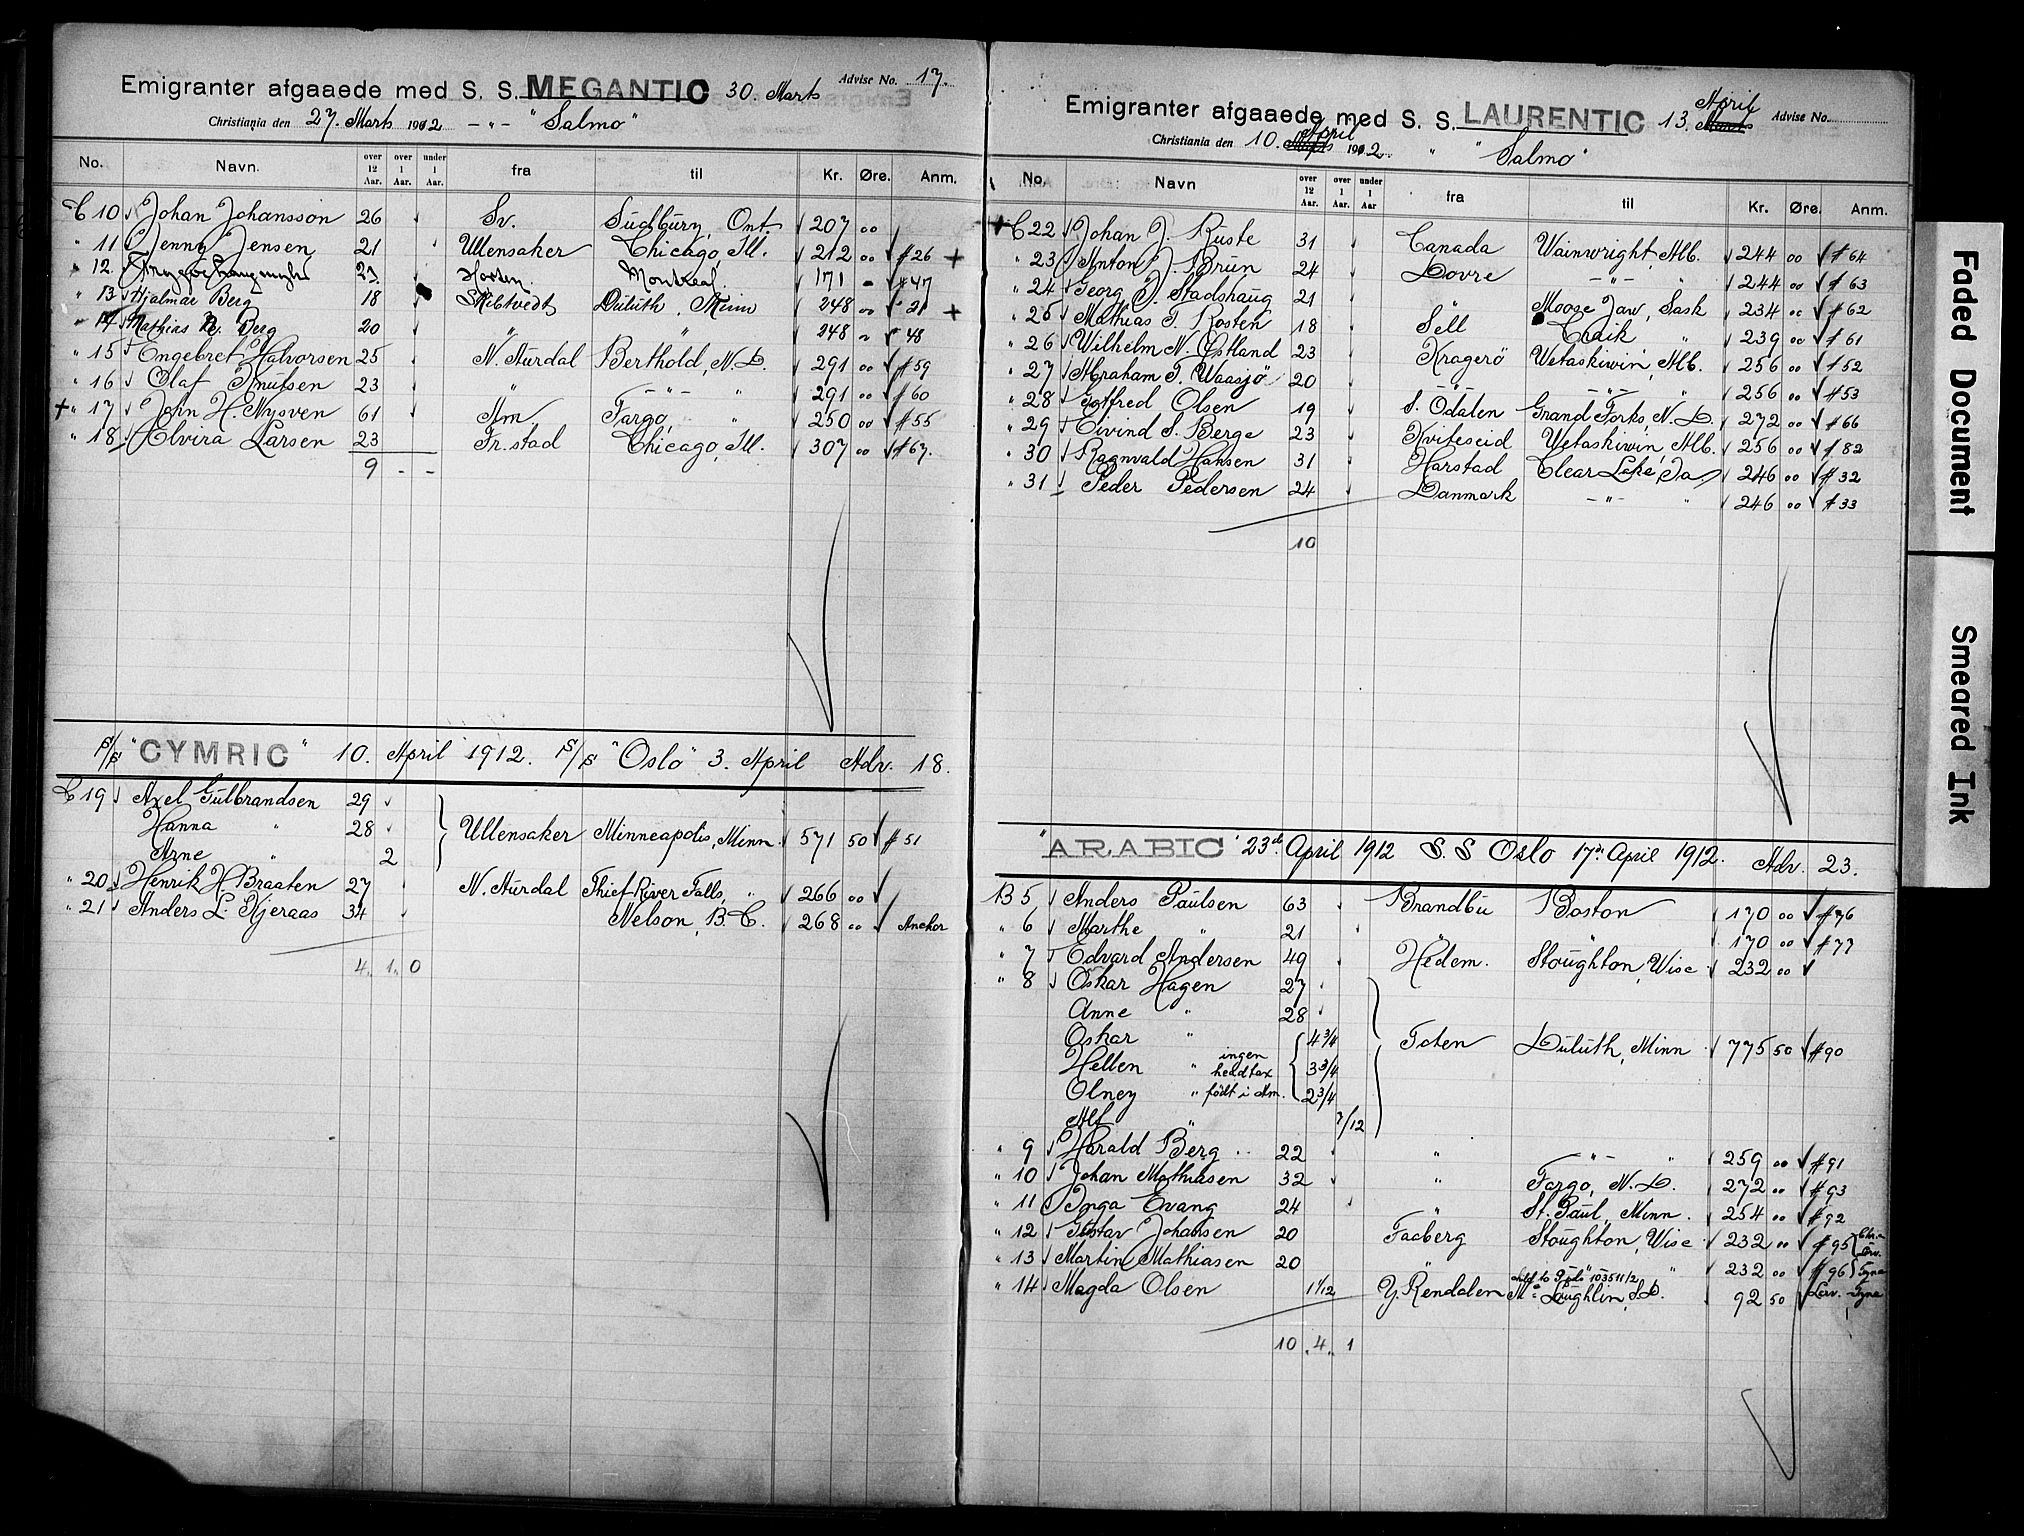 Emigranter afgaaede med S. S. MEGANTIC 30. Marts Advise No. 17.
Christiania den 27. Marts 1912 -„- "Salmo"
No. Navn. over 12 Aar. over 1 Aar. under 1 Aar. fra til Kr. Øre. Anm.
C 10 Johan Johansson 26 Sv. Sudbury, Ont. 207 00
" 11 Jenny Jensen 21 Ullensaker Chicago, Ill. 212 00 # 26 +
" 12. 23. Horten Montreal. 171 - # 47
" 13 Hjalmar Berg 18 Skibtvedt Duluth, Minn 248 00 " 21 +
" 14 Mathias N. Berg 20 " " 248 " # 48
" 15 Engebret Halvorsen 25 N. Aurdal Berthold, N.D. 291 00 # 59
" 16 Olaf Knutsen 23 " -"- " 291 00 # 60
+ " 17 John H. Nysven 61 Am Fargo, " 250 00 # 55
" 18 Elvira Larsen 23 Fr.stad Chicago, Ill. 307 00 # 67.
9 - -
S/S "CYMRIC" 10. April 1912. S/S "Oslo" 3. April Adv. 18.
C 19 Axel Gulbrandsen 29
Hanna " 28 Ullensaker Minneapolis, Minn. 571 50 # 51
Arne " 2
" 20 Henrik H. Braaten 27 N. Aurdal Thief River Falls, " 266 00
" 21 Anders L. Kjeraas 34 Nelson, B.C. 268 00 Anchor
4. 1. 0
Emigranter afgaaede med S. S. LAURENTIC 13. April Advise No.
Christiania den 10. April 1912. " "Salmo"
No. Navn over 12 Aar. over 1 Aar. under 1 Aar fra til Kr. Øre. Anm.
+ C 22 Johan J. Ruste 31 Canada Wainwright, Alb. 244 00 # 64
" 23 Anton J. Brun 24 Dovre -"- " 244 00 # 63
" 24 Georg J. Stadshaug 21 " Moose Jaw, Sask 234 00 # 62
" 25 Mathias T. Rosten 18 Sell Craik " 239 00 # 61
" 26 Wilhelm N. Østland 23 Kragerö Wetaskiwin, Alb. 256 00 # 52
" 27 Abraham T. Waasjö 20 -"- -"- " 256 00 # 53
" 28 Gotfred Olsen 19 S. Odalen Grand Forks, N.D. 272 00 # 66
" 29 Eivind S. Berge 23 Kviteseid Wetaskiwin, Alb. 256 00 # 82
" 30 Ragnvald Hansen 31 Harstad Clear Lake, Ia. 246 00 # 32
" 31 Peder Pedersen 24 Danmark -"- " 246 00 # 33
10
"ARABIC" 23de April 1912 S.S Oslo 17de April 1912. Adv. 23.
B 5 Anders Paulsen 63 Brandbu Boston 170 00 # 76
" 6 Marthe " 21 " " 170 00 # 77
" 7 Edvard Andersen 49 Hedem. Stoughton, Wisc 232 00
" 8 Oskar Hagen 27
Anne " 28
Oskar " 4 3/4 Toten Duluth, Minn 775 50 # 90
Hellen " ingen headtax 3 3/4
Olney " födt i Am. 2 3/4
Alf " 7/12
" 9 Harald Berg 22 " -"- " 259 00 # 91
" 10 Johan Mathiasen 32 " Fargo, N.D. 272 00 # 93
" 11 Inga Evang 24 " St. Paul, Minn. 254 00 # 92
" 12 Gustav Johansen 20 Faaberg Stoughton, Wisc 232 00 # 95
" 13 Martin Mathiasen 20 " " 232 00 # 96 Tyne
" 14 Magda Olsen 11/12 Y. Rendalen Mc Loughlin, S.D. 92 50 Tyne
10 . 4. 1
Faded Document
Smeared Ink